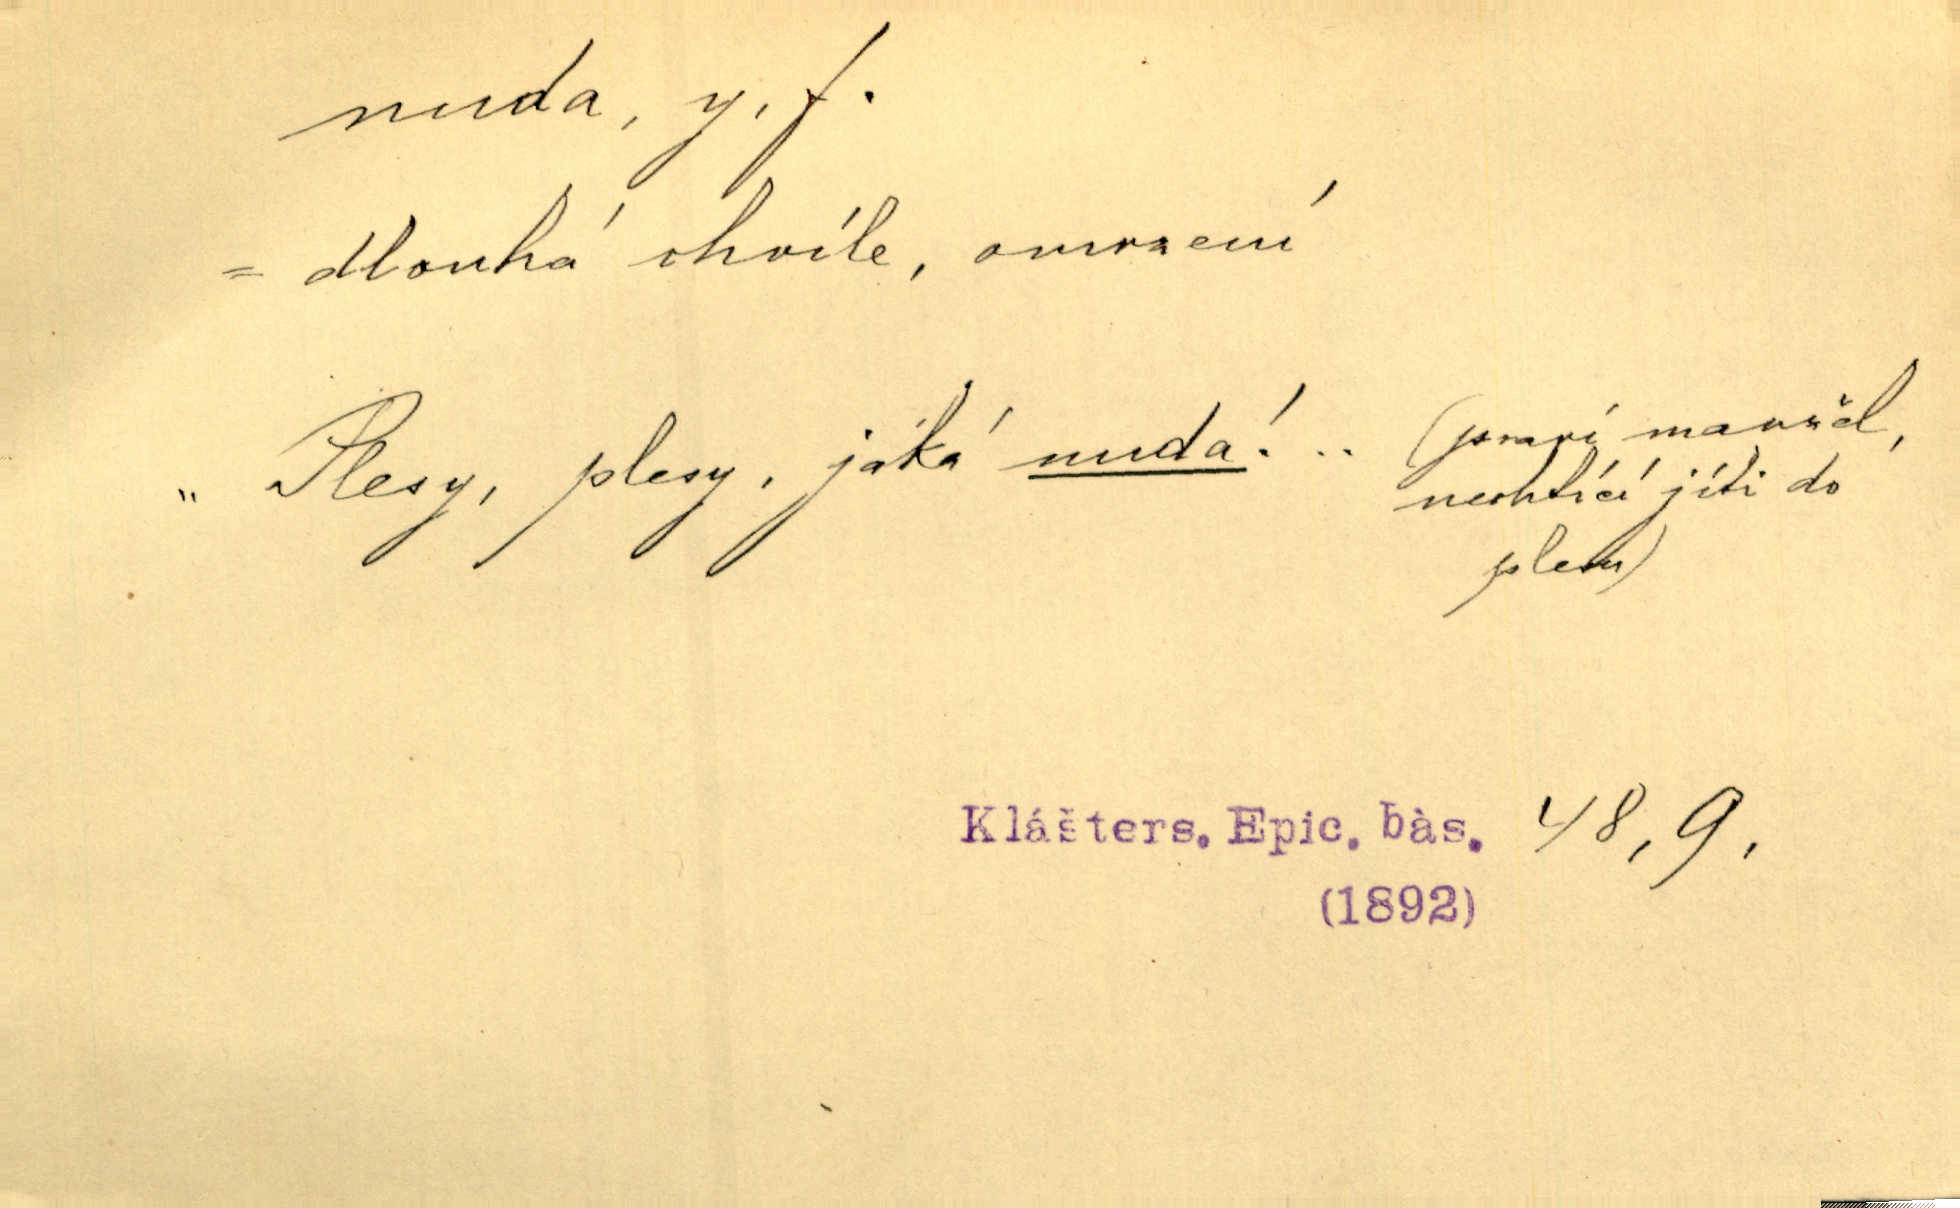 nuda, y, f.
= dlouhá chvíle, omrzení
„ Plesy, plesy, jaká nuda! .. (praví manžel,
nechtící jíti do
plesu)
Klášters. Epic. bàs. 48, 9,
(1892)